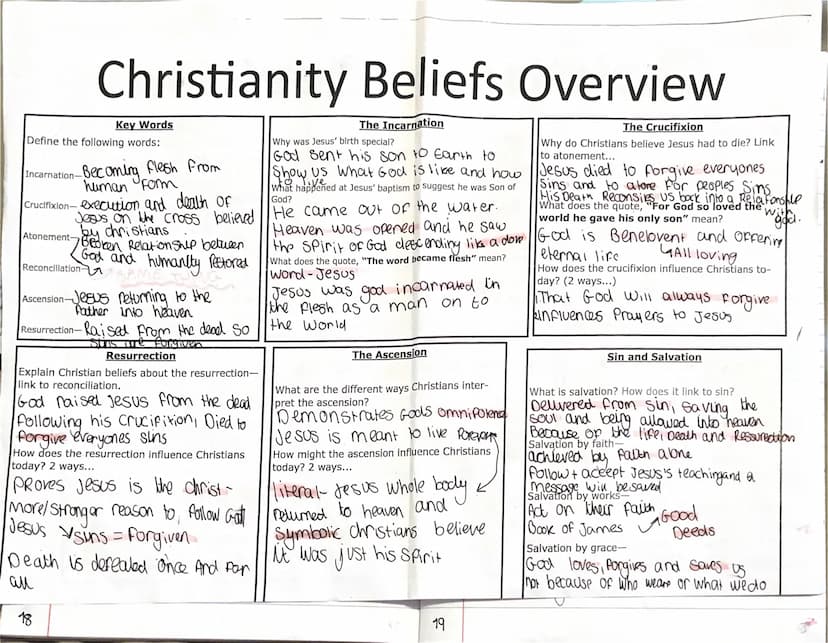 Christianity Beliefs Overview
Key Words
Define the following words:
Incarnation- Becoming flesh from
human form
Crucifixion- execution and death of
Jesus on the cross believed
by christians
Atonement- Broken Relationship between
God and humanity Restored
Reconciliation-
Ascension- Jesus returning to the
Father into heaven
Resurrection- Raised from the dead so
sins are forgiven
The Incarnation
Why was Jesus' birth special?
God sent his son to Earth to
show us what God is like and how
to live
What happened at Jesus' baptism to suggest he was Son of
God?
He came out of the water.
Heaven was opened and he saw
the spirit of God descending like a dove
What does the quote, "The word became flesh" mean?
word-Jesus
Jesus was god incarnated in
the flesh as a man on to
the world
The Crucifixion
Why do Christians believe Jesus had to die? Link
to atonement...
Jesus died to forgive everyones
sins and to atone for peoples sins
His Death Reconsiles us back into a Relationship
with god.
What does the quote, "For God so loved the
world he gave his only son" mean?
God is Benelovent and offering
eternal life All loving
How does the crucifixion influence Christians to-
day? (2 ways...)
That God will always forgive
influences Prayers to Jesus
Resurrection
Explain Christian beliefs about the resurrection—
link to reconciliation.
God raised Jesus from the dead
following his crucifixion, Died to
forgive everyones sins
How does the resurrection influence Christians
today? 2 ways...
Proves Jesus is the christ-
More/stronger reason to, follow God
Jesus sins = forgiven
Death is defeated once and for
all
The Ascension
What are the different ways Christians inter-
pret the ascension?
Demonstrates Gods omnipotence
Jesus is meant to live forever
How might the ascension influence Christians
today? 2 ways...
literal- Jesus whole body
returned to heaven and
symbolic christians believe
it was just his spirit
Sin and Salvation
What is salvation? How does it link to sin?
Delivered from sin, saving the
soul and being allowed into heaven
Because of the life, Death and Resurrection
Salvation by faith—
achieved by faith alone
follow + accept Jesus's teaching and a
message will be saved
Salvation by works—
Act on their faith Good
Book of James Deeds
Salvation by grace—
God loves, forgives and saves us
not because of who we are or what we do
18
19